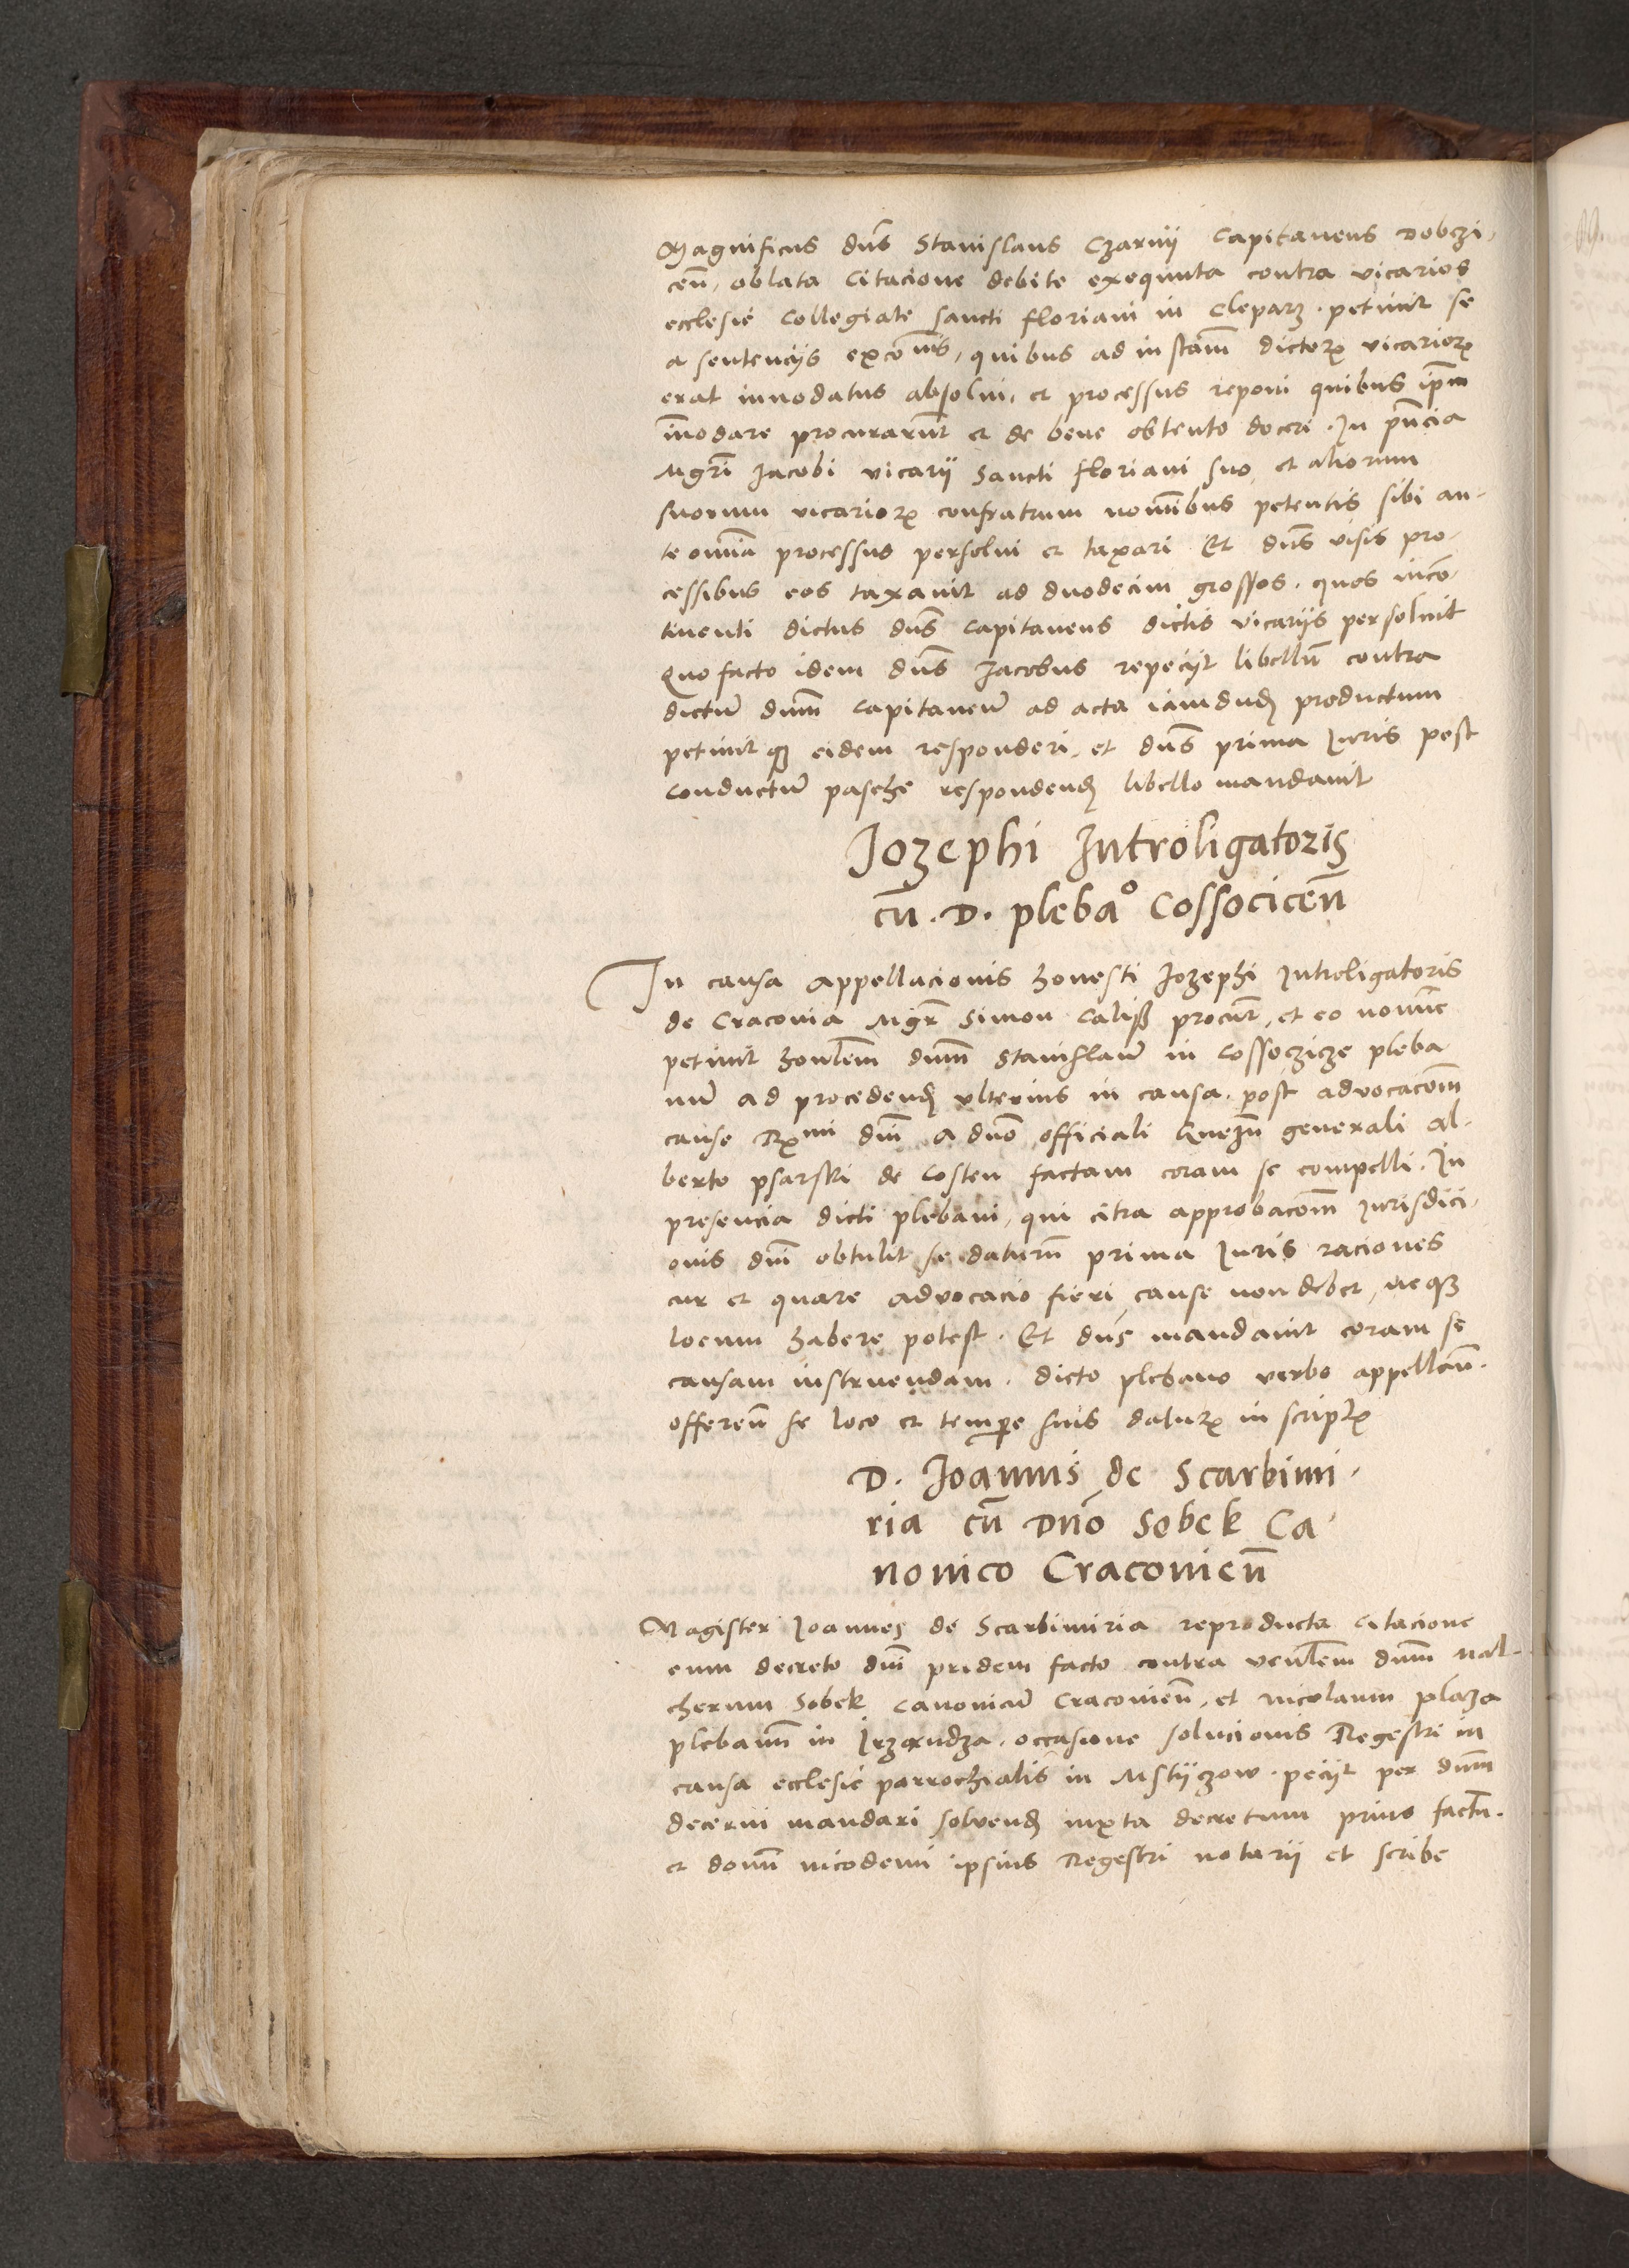 Magnificus dn̄s Stanislaus Czarnij Capitaneus Dobczi-
cen̄, oblata Citacione debite exequuta contra vicarios
ecclesie Collegiate Sancti floriani in Cleparz. petiuit se
a sentencijs exco͞nis, quibus ad instān̄ dictorꝝ vicariorꝝ
erat innodatus absolui, et processus reponi quibus ip̄m
īnodare procurarunt et de bene obtento doceri. In p̄ncia
Mgr̄i Jacobi vicarij Sancti floriani suo et aliorum
suorum vicariorꝝ confratrum noīibus petentis sibi an-
te omnia processus persolui et taxari Et dn̄s visis pro-
cessibus eos taxauit ad duodecim grossos. quos inco͞-
tinenti dictus dn̄s Capitaneus dictis vicarijs persoluit
Quo facto idem dn̄s Jacobus repecijt libellū contra
dictū dnm̄ Capitaneū ad acta iamdudꝫ productum
petiuitqꝫ eidem responderi, et dn̄s prima Iuris post
Conductū pasche respondendꝫ libello mandauit
Jozephi Introligatoris
cū. D. plebaº Cossocicen̄
In causa Appellacionis honesti Jozephi Introligatoris
de Cracouia Mgr̄ Simon Caliß procur̄, et eo nomīe
petiuit hon̄lem dnm̄ Stanislaū in Cossoczicze pleba
nū ad procedendꝫ vlterius in causa. post advocacōm̄
cause Rx̄mi dni̅ a dn̄o officiali Gnezn̄ generali Al-
berto psarski de Costen factam coram se compelli. In
presencia dicti plebani, qui citra approbacōm̄ Iurisdici-
onis dni̅ obtulit se daturū prima Iuris raciones
cur et quare advocacio fieri cause non debet, neqꝫ
locum habere potest. Et dn̄s mandauit coram se
causam instruendam. dicto plebano verbo appellan̄.
offeren̄ se loco et temp̱e suis daturꝝ in scriptꝭ
D. Joannis de Scarbimi-
ria cū Dn̄o Sobek Ca-
nonico Cracouien̄
Magister Joannes de Scarbimiria reproducta Citacione
cum decreto dni̅ pridem facto contra ven̄lem dnm̄ Mal-
cherum Sobek Canonicū Cracouien̄, et Nicolaum plaza
plebanū in Irzandza. occasione solucionis Regestri in
causa ecclesie parrochialis in Mstijczow. pecijt per dnm̄
decerni mandari soluendꝫ iuxta decretum prius factū.
et domū nicodemi ipsius Regestri notarij et scribe